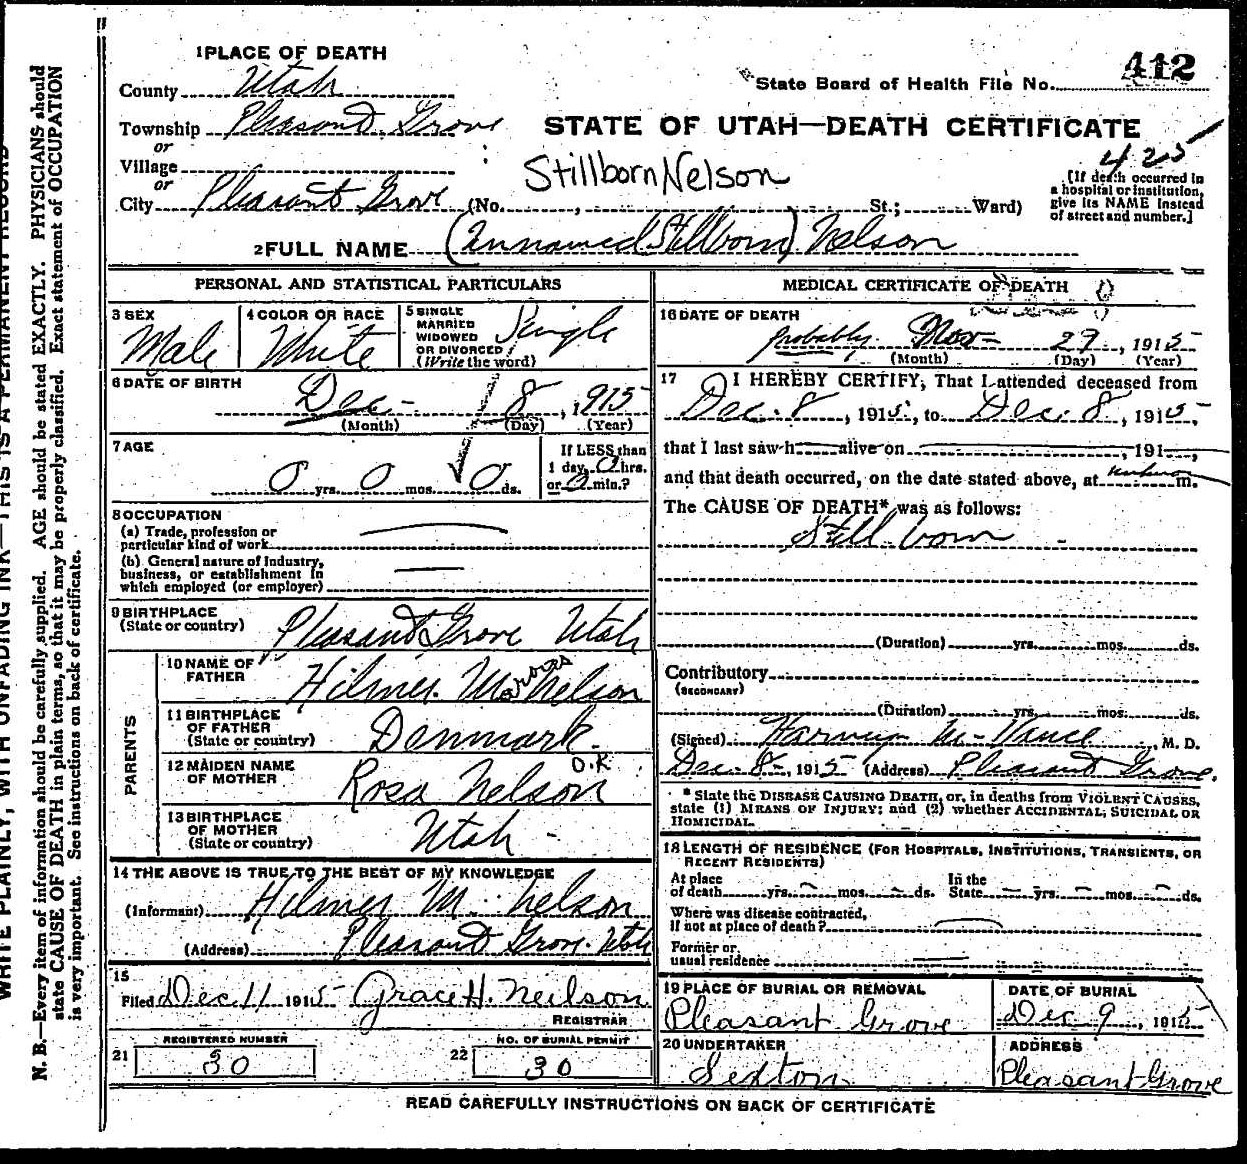 1 PLACE OF DEATH
412
State Board of Health File No.
County Utah
Township Pleasant Grove
or
STATE OF UTAH—DEATH CERTIFICATE
425
Village
or
Stillborn Nelson
[If death occurred in a hospital or institution, give its NAME instead of street and number.]
City Pleasant Grove (No. , St.; Ward)
2 FULL NAME (Unnamed Stillborn) Nelson
PERSONAL AND STATISTICAL PARTICULARS
3 SEX
Male
4 COLOR OR RACE
White
5 SINGLE
MARRIED
WIDOWED
OR DIVORCED
(Write the word)
Single
6 DATE OF BIRTH
Dec- 8, 1915
(Month) (Day) (Year)
7 AGE
0 yrs. 0 mos. 0 ds.
If LESS than
1 day, 0 hrs.
or 0 min.?
8 OCCUPATION
(a) Trade, profession or
particular kind of work
(b) General nature of Industry,
business, or establishment in
which employed (or employer)
9 BIRTHPLACE
(State or country) Pleasant Grove Utah
PARENTS
10 NAME OF
FATHER
Hilmer Marovas Nelson
11 BIRTHPLACE
OF FATHER
(State or country) Denmark.
12 MAIDEN NAME
OF MOTHER
O.K
Rosa Nelson
13 BIRTHPLACE
OF MOTHER
(State or country) Utah -
14 THE ABOVE IS TRUE TO THE BEST OF MY KNOWLEDGE
(Informant) Hilmer M. Nelson
(Address) Pleasant Grove. Utah
15
Filed Dec 11 1915 Grace H. Neilson
REGISTRAR
21 REGISTERED NUMBER
30
22 NO. OF BURIAL PERMIT
30
MEDICAL CERTIFICATE OF DEATH
16 DATE OF DEATH
probably Nov- 29, 1915
(Month) (Day) (Year)
17 I HEREBY CERTIFY, That I attended deceased from
Dec. 8, 1915, to Dec. 8, 1915,
that I last saw h alive on , 191 ,
and that death occurred, on the date stated above, at unknown m.
The CAUSE OF DEATH* was as follows:
Still born -
(Duration) yrs. mos. ds.
Contributory
(SECONDARY)
(Duration) yrs. mos. ds.
(Signed) M. Vance, M. D.
Dec. 8-, 1915 (Address) Pleasant Grove.
* State the DISEASE CAUSING DEATH, or, in deaths from VIOLENT CAUSES,
state (1) MEANS OF INJURY; and (2) whether ACCIDENTAL, SUICIDAL OR
HOMICIDAL.
18 LENGTH OF RESIDENCE (FOR HOSPITALS, INSTITUTIONS, TRANSIENTS, OR
RECENT RESIDENTS)
At place
of death yrs. mos. ds. In the
State yrs. mos. ds.
Where was disease contracted,
If not at place of death?
Former or
usual residence
19 PLACE OF BURIAL OR REMOVAL
Pleasant Grove
DATE OF BURIAL
Dec 9, 1915
20 UNDERTAKER
Sexton
ADDRESS
Pleasant Grove
READ CAREFULLY INSTRUCTIONS ON BACK OF CERTIFICATE
WRITE PLAINLY, WITH UNFADING INK—THIS IS A PERMANENT RECORD
N. B.—Every item of information should be carefully supplied. AGE should be stated EXACTLY. PHYSICIANS should
state CAUSE OF DEATH in plain terms, so that it may be properly classified. Exact statement of OCCUPATION
is very important. See instructions on back of certificate.